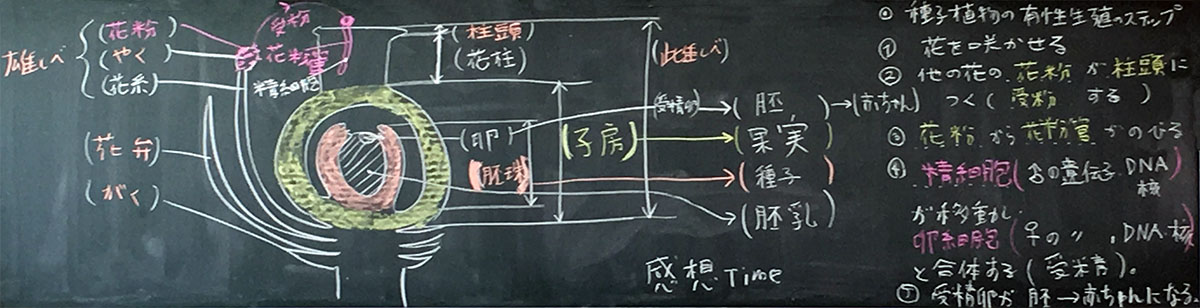 雄しべ
(花粉)
(やく)
(花糸)
受粉
花粉管
精細胞
(花弁)
(がく)
(柱頭)
(花柱)
(雌しべ)
(卵)
(胚珠)
(子房)
(受精卵)
(胚)→(赤ちゃん)
(果実)
(種子)
(胚乳)
感想Time
○ 種子植物の有性生殖のステップ
① 花を咲かせる
② 他の花の花粉が柱頭に
つく(受粉する)
③ 花粉から花粉管がのびる
④ 精細胞(♂の遺伝子DNA)
核
が移動し、
卵細胞(♀の〃、DNA・核)
と合体する(受精)。
⑤ 受精卵が胚→赤ちゃんになる